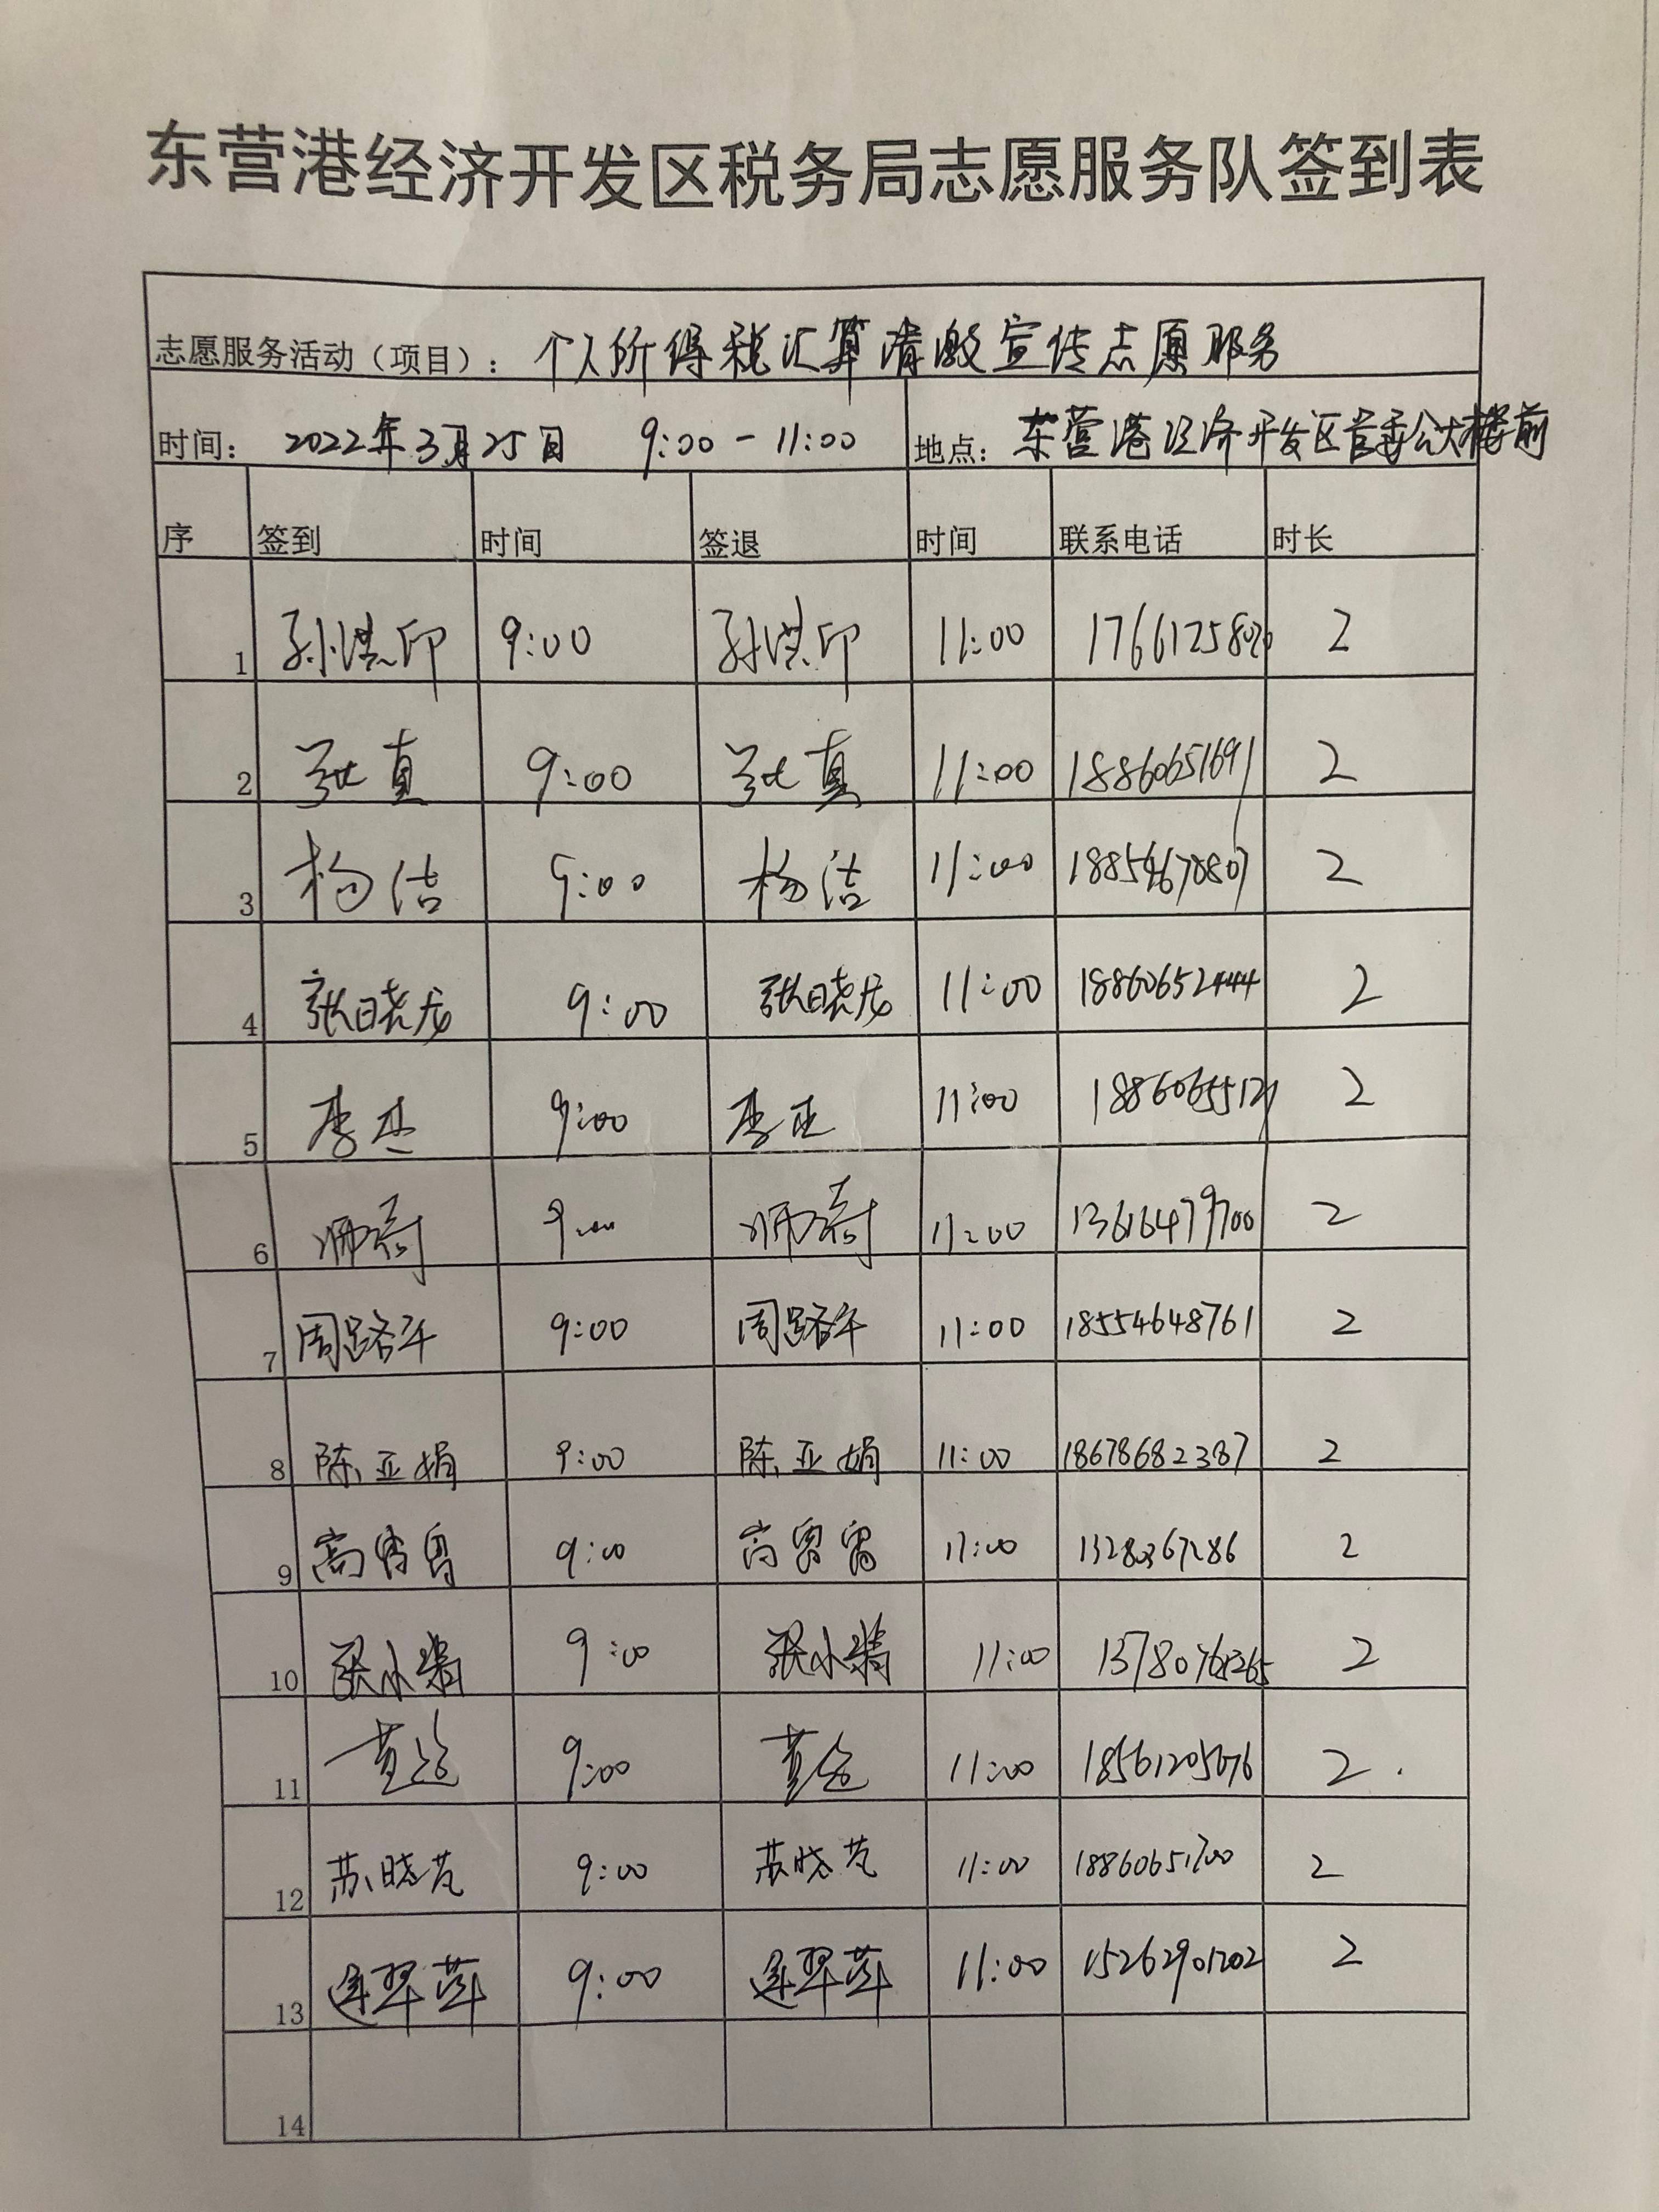 东营港经济开发区税务局志愿服务队签到表
志愿服务活动（项目）：个人所得税汇算清缴宣传志愿服务
时间：2022年3月25日 9:00-11:00 地点：东营港经济开发区管委会大楼前
序 签到 时间 签退 时间 联系电话 时长
1 孙洪印 9:00 孙洪印 11:00 2
2 张真 9:00 张真 11:00 18860651691 2
3 杨洁 9:00 杨洁 11:00 18854670807 2
4 张晓龙 9:00 张晓龙 11:00 18860652444 2
5 李 9:00 李 11:00 18860655121 2
6 9:00 11:00 13616479700 2
7 周路平 9:00 周路平 11:00 18554648761 2
8 陈亚娟 9:00 陈亚娟 11:00 18678682387 2
9 高 9:00 高 11:00 2
10 张小 9:00 张小 11:00 2
11 9:00 11:00 18561205676 2
12 苏晓芃 9:00 苏晓芃 11:00 18860651700 2
13 逄翠萍 9:00 逄翠萍 11:00 15262901202 2
14